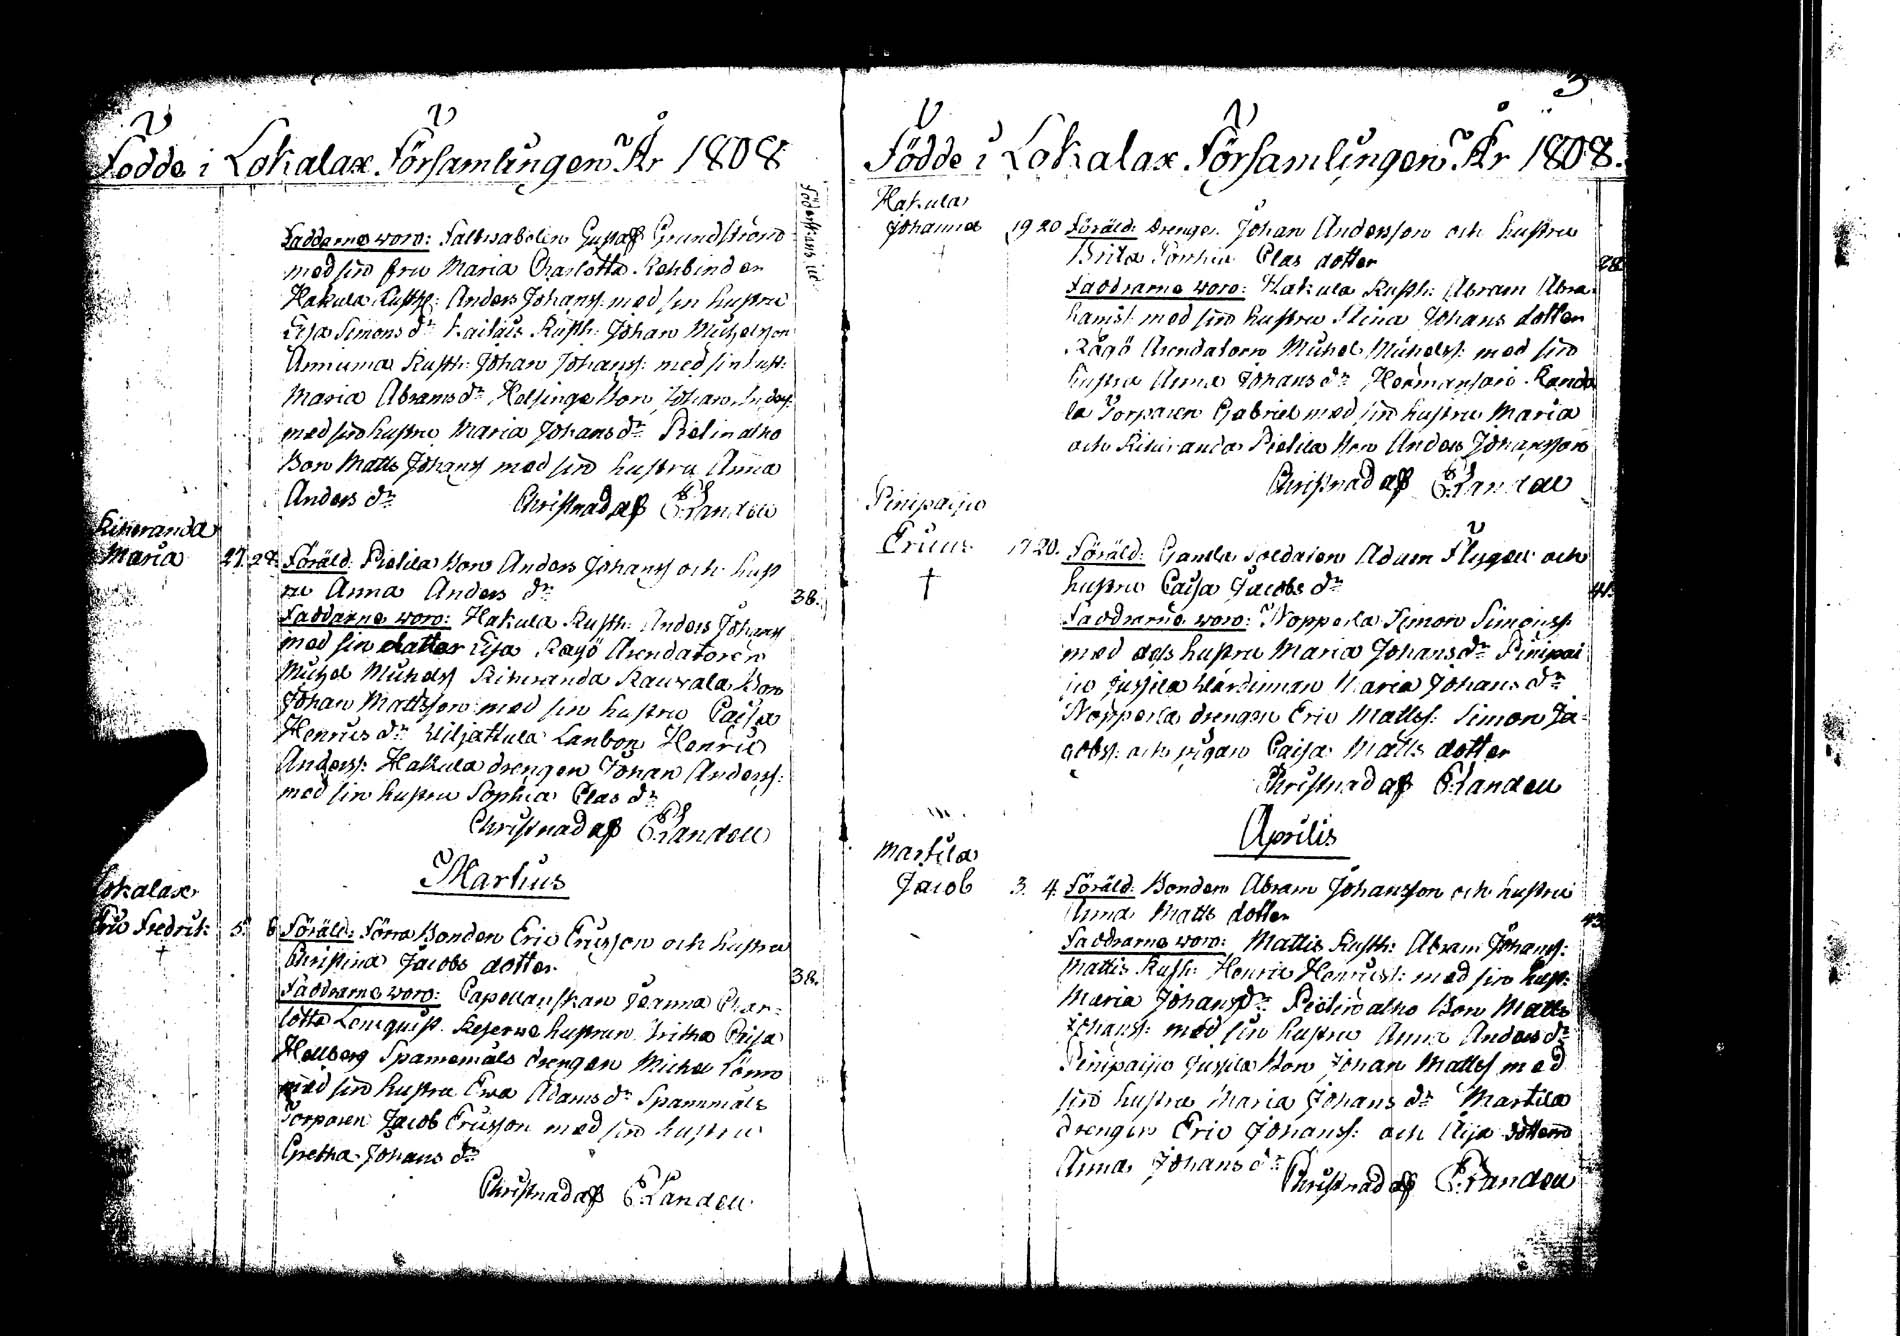 Födde i Lokalax Församlingen År 1808
Föderskans åld
Faddarne woro: Fältwäbelen Gustaff Grundström
med sin fru Maria Charlotta Rehbinder
Hakula Rusth: Anders Johanss: med sin hustru
Lisa Simons dr Rusth: Johan Michelsson
Anniuma Rusth: Johan Johanss: med sin hust:
Maria Abrams dr Helsinge Bon Johan Anderss:
med sin hustru Maria Johans dr Pietinalho
Bon Matts Johanss med sin hustru Anna
Anders dr Christnad aff E. Landell
Kiheranda
Maria 27. 28. Föräld: Pietila Bon Anders Johanss och hust
ru Anna Anders dr 38.
Faddarne woro: Hakula Rusth: Anders Johanss
med sin dotter Lisa Rågö Arendatoren
Michel Michelss Kiheranda Rauvala Bon
Johan Mattsson med sin hustru Caisa
Henrics dr Uiljattula Lanbon Henric
Anderss: Hakula drengen Johan Anderss:
med sin hustru Sophia Clas dr
Christnad aff E. Landell
Martius
Lokalax
Eric Fredrik 5. 6 Föräld: Förra Bonden Eric Ericsson och hustru
†
Christina Jacobs dotter 38.
Faddrarne woro: Capellanskan Joanna Char-
lotta Lonquist Reserve hustrun Britha Caisa
Hellberg Spannemäls drengen Michel
med sin hustru Ewa Adams dr Spannmäls
Torparen Jacob Ericsson med sin hustru
Gretha Johans dr
Christnad aff E. Landell
3
Födde i Lokalax Församlingen År 1808.
Hakula
Johanna 19 20 Föräld: Drengen Johan Andersson och hustru
†
Brita Sophia Clas dotter 28
Faddrarne woro: Hakula Rusth: Abram Abra-
hamss: med sin hustru Stina Johans dotter
Rågö Arendatorn Michel Michelss: med sin
hustru Anna Johans dr Hermansari Randa
la Torparen Gabriel med sin hustru Maria
och Kiheranda Pietila Bon Anders Johansson
Christnad aff E. Landell
Pinipaijo
Ericus 17 20. Föräld: Gamla Soldaten Adam Flygell och
†
hustru Caisa Jacobs dr 41.
Faddrarne woro: Nopperla Simon Simonss:
med dess hustru Maria Johans dr Pinipai
jo Jussila Wärdinnan Maria Johans dr
Nopperla drengen Eric Mattss: Simon Ja-
cobss: och pigan Caisa Matts dotter
Christnad aff E. Landell
Aprilis
Martila
Jacob 3. 4. Föräld: Bonden Abram Johansson och hustru
Anna Matts dotter 43
Faddrarne woro: Mattis Rusth: Abram Johanss:
Mattis Rusth: Henric Henricss: med sin hust:
Maria Johans dr Pietinalho Bon Matts
Johanss: med sin hustru Anna Anders dr
Pinipaijo Jussila Bon Johan Mattss med
sin hustru Maria Johans dr Martila
drengen Eric Johanss: och
Anna Johans dr Christnad aff E. Landell